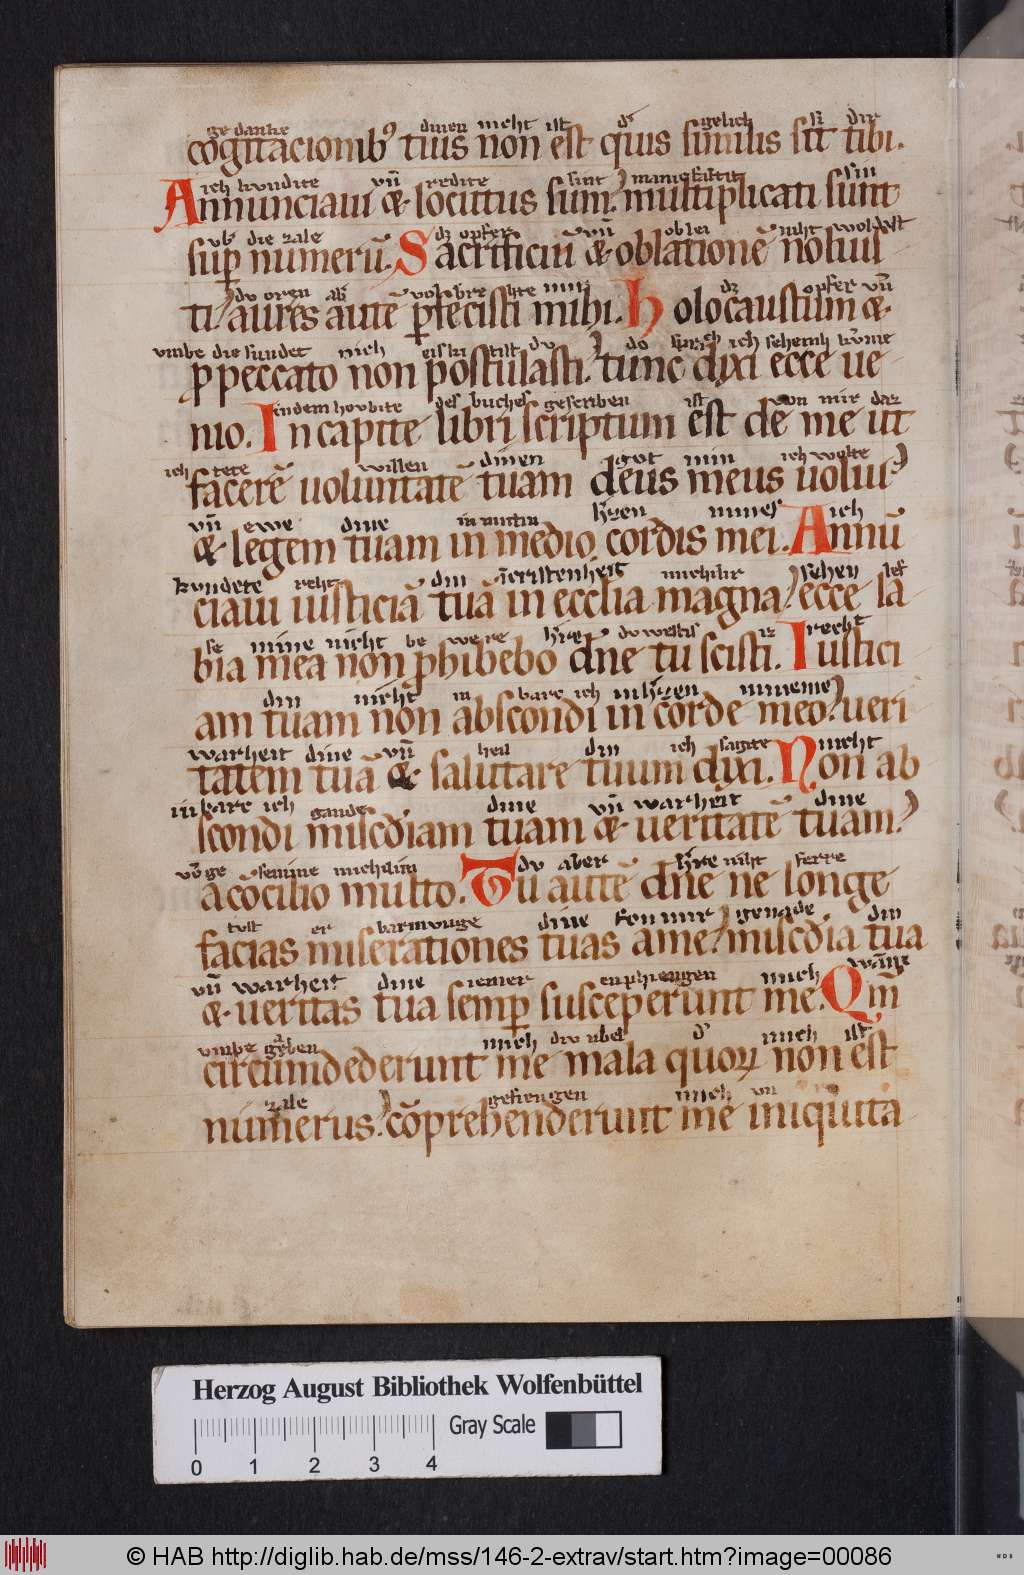 ge danke dinen nicht ist d' gelich si dir
cogitacionib9 tuis non est q'uis similis sit tibi.
ich kvndite vn̄ redite sint manicfaltit sin
Annunciaui & locutus sum: multiplicati sunt
vb' die zale dz opfer vn̄ oblei niht woldest
sup numerū. Sacrificiū & oblationē noluis
dv oren ab' volebre hte mir dz opfer vn̄
ti: aures autē pfecisti mihi. Holocaustum &
vmbe die sundet nich eiski tist dv do sprach ich sehenh kvme
p peccato non postulasti: tunc dixi ecce ue
in dem hovbite des buches gescriben ist von mir daz
nio. In capite libri scriptum est de me ut
ich tete willen dinen got min ich wolte
facerē uoluntatē tuam deus meus uolui:
vn̄ ewe dine in mittin h'zen mines ich
& legem tuam in medio cordis mei. Annū
kvndete reht din c̄ristenheit michilir sehen lef
ciaui iusticiā tuā in ecclia magna: ecce la
se mine nicht be were h're dv westis iz recht
bia mea non phibebo dn̄e tu scisti. Iustici
din nicht in bare ich in h'zen mineme
am tuam non abscondi in corde meo: ueri
warheit dine vn̄ heil din ich sagete nicht
tatem tuā & salutare tuum dixi. Non ab
in bare ich gande dine vn̄ warheit dine
scondi miscdiam tuam & ueritatē tuam:
vō ge semine michilim dv aber h're niht ferre
a cōcilio multo. Tu autē dn̄e ne longe
tvst er barmvnge dine fon mir genade din
facias miserationes tuas a me: miscdia tua
vn̄ warheit dine iemer enphiengen mich wāne
& ueritas tua semp susceperunt me. Qm̄
vmbe gaben mich div ubel d' mich ist
circumdederunt me mala quoꝝ non est
zale gefiengen mich vn
numerus: cōprehenderunt me iniquita
Herzog August Bibliothek Wolfenbüttel
Gray Scale
0 1 2 3 4
© HAB http://diglib.hab.de/mss/146-2-extrav/start.htm?image=00086